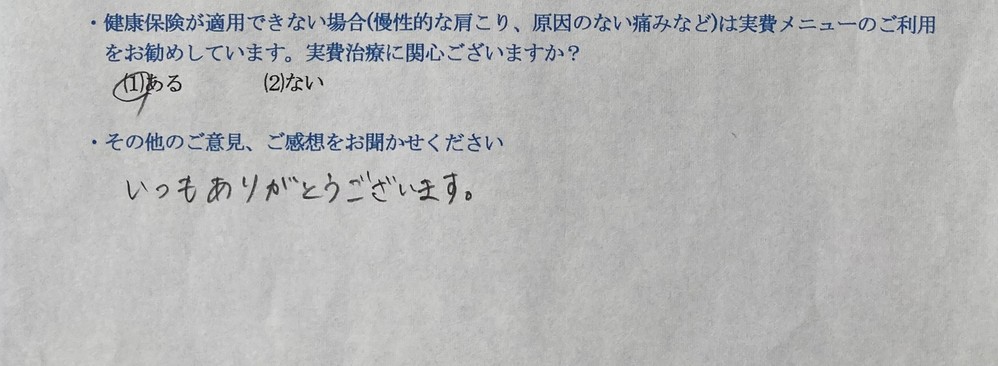 ・健康保険が適用できない場合(慢性的な肩こり、原因のない痛みなど)は実費メニューのご利用
をお勧めしています。実費治療に関心ございますか？
(1)ある　　　　(2)ない
・その他のご意見、ご感想をお聞かせください
いつもありがとうございます。